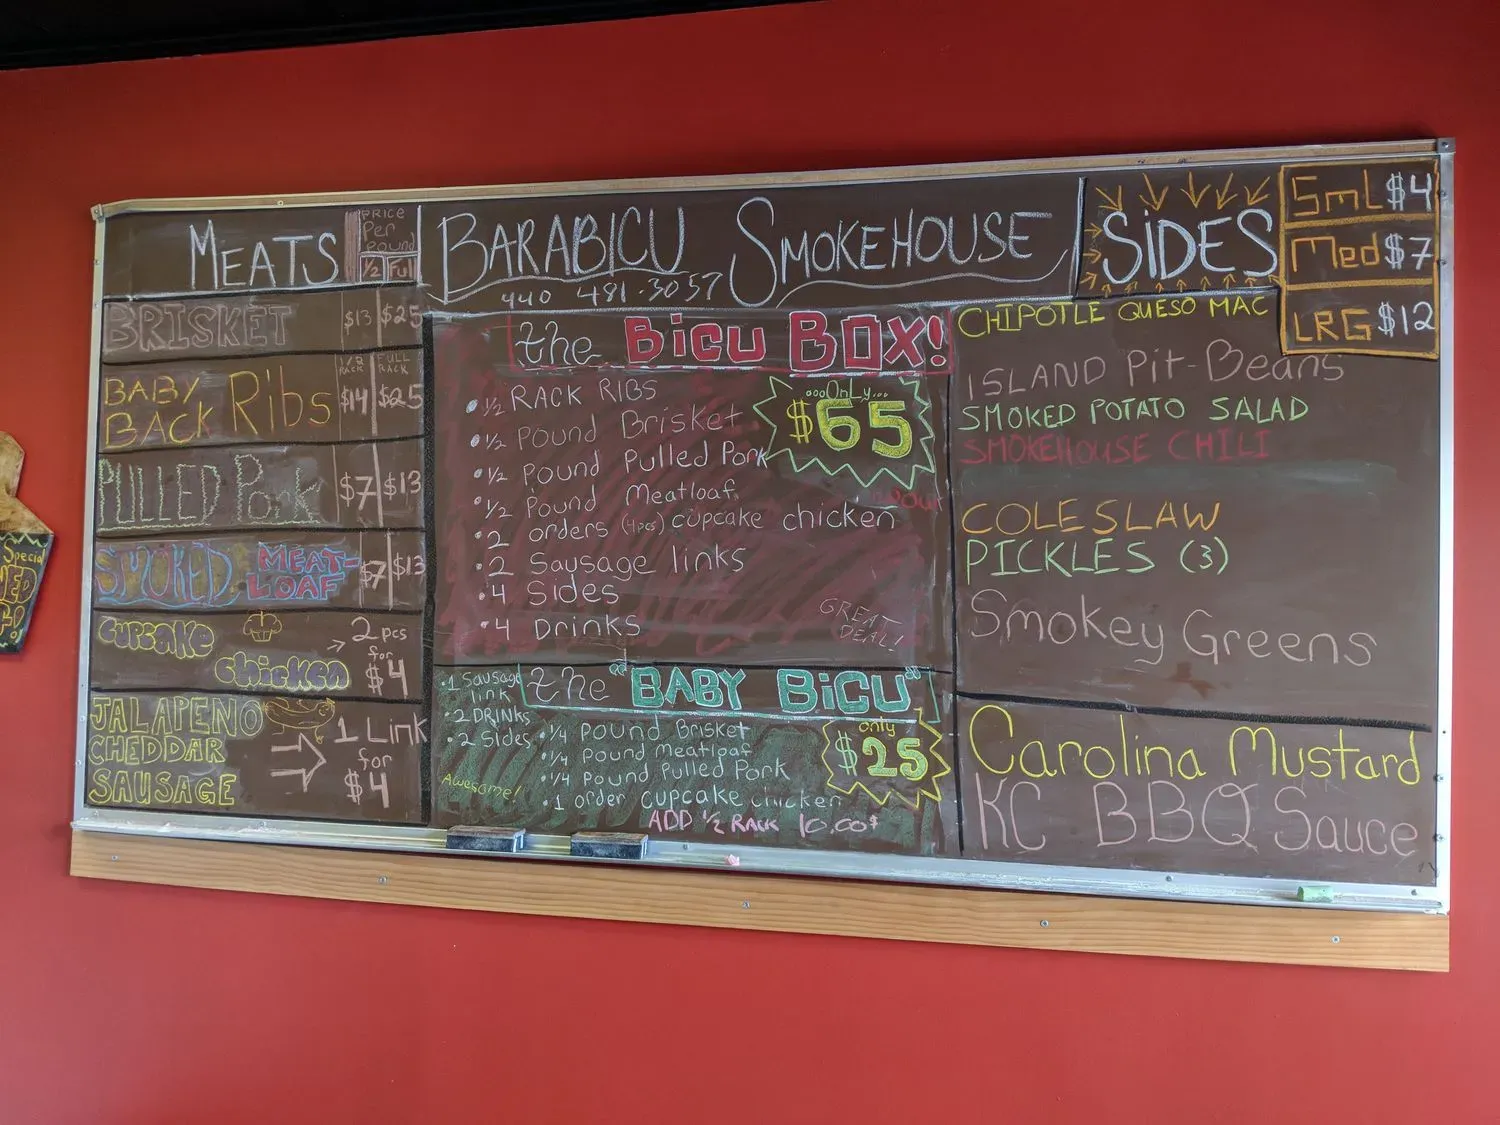 MEATS
PRICE
Per
Pound
1/2 Full
BRISKET $13 $25
1/2 RACK FULL RACK
BABY
BACK Ribs $14 $25
PULLED Pork $7 $13
SMOKED MEAT-
LOAF $7 $13
Cupcake
chicken
→ 2 pcs
for
$4
JALAPENO
CHEDDAR
SAUSAGE
1 Link
for
$4
BARABICU SMOKEHOUSE
440 481-3057
the Bicu BOX!
oooOnly...
$65
• 1/2 RACK RIBS
• 1/2 Pound Brisket
• 1/2 Pound Pulled Pork
• 1/2 Pound Meatloaf
• 2 orders (4pcs) cupcake chicken
• 2 Sausage links
• 4 Sides
• 4 Drinks
GREAT
DEAL!
the "BABY BiCU"
only
$25
• 1 Sausage
link
• 2 DRINKS
• 2 Sides
Awesome!
• 1/4 Pound Brisket
• 1/4 Pound Meatloaf
• 1/4 Pound Pulled Pork
• 1 order cupcake chicken
ADD 1/2 RACK 10.00$
SiDES
Sml $4
Med $7
LRG $12
CHIPOTLE QUESO MAC
ISLAND Pit-Beans
SMOKED POTATO SALAD
SMOKEHOUSE CHILI
COLESLAW
PICKLES (3)
Smokey Greens
Carolina Mustard
KC BBQ Sauce
Special